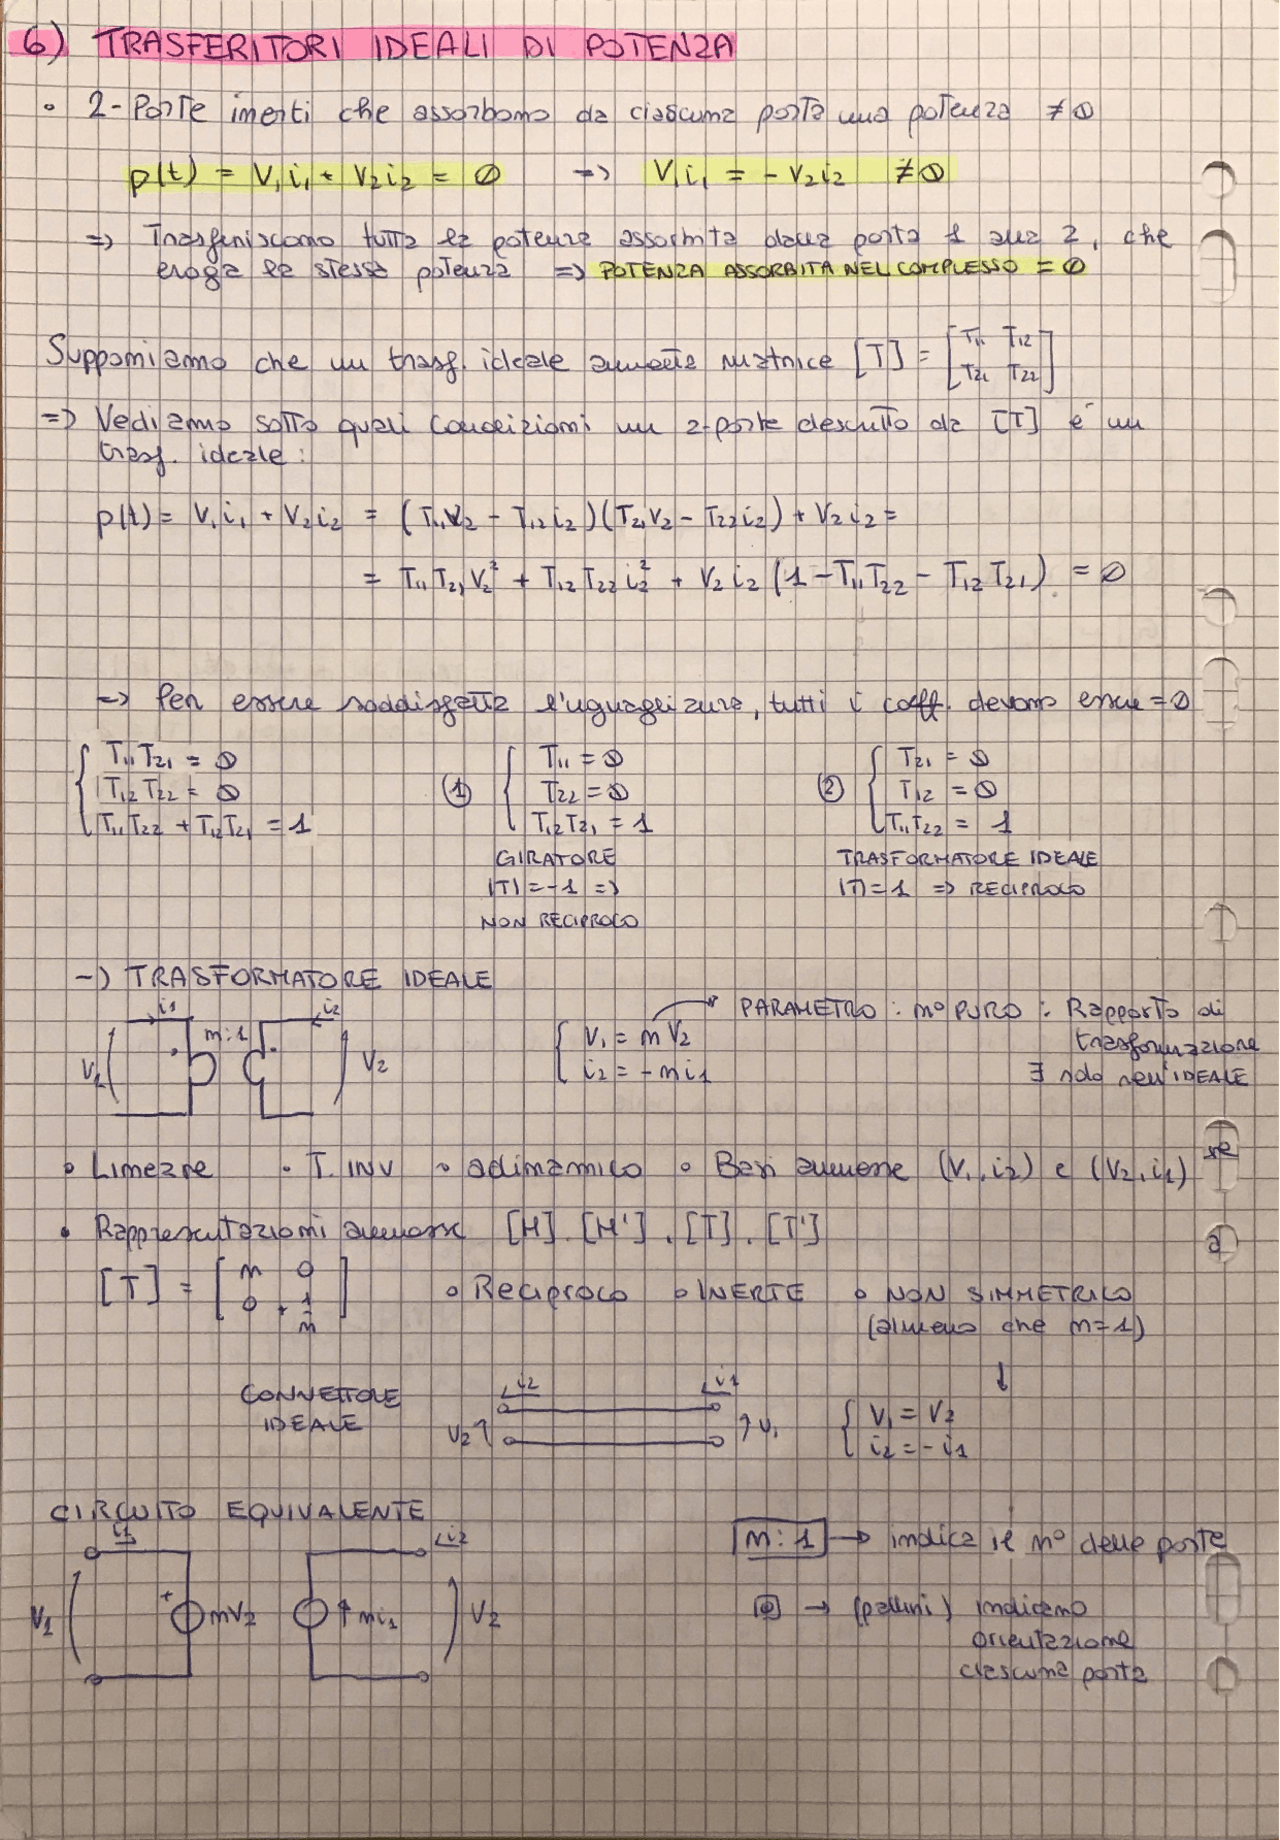 6) TRASFERITORI IDEALI DI POTENZA
• 2-Porte inerti che assorbono da ciascuna porta una potenza ≠ 0
p(t) = V1i1 + V2i2 = 0 => V1i1 = - V2i2 ≠ 0
=> Trasferiscono tutta la potenza assorbita dalla porta 1 alla 2, che
eroga la stessa potenza => POTENZA ASSORBITA NEL COMPLESSO = 0
Supponiamo che un trasf. ideale ammetta matrice [T] = [T11 T12
T21 T22]
=> Vediamo sotto quali condizioni un 2-porte descritto da [T] è un
trasf. ideale:
p(t) = V1i1 + V2i2 = (T11V2 - T12i2)(T21V2 - T22i2) + V2i2 =
= T11T21V2² + T12T22i2² + V2i2 (1 - T11T22 - T12T21) = 0
=> Per essere soddisfatta l'uguaglianza, tutti i coeff. devono essere = 0
{ T11T21 = 0 (1) { T11 = 0 (2) { T21 = 0
T12T22 = 0 T22 = 0 T12 = 0
T11T22 + T12T21 = 1 T12T21 = 1 T11T22 = 1
GIRATORE TRASFORMATORE IDEALE
|T| = -1 => |T| = 1 => RECIPROCO
NON RECIPROCO
-) TRASFORMATORE IDEALE
i1 i2
V1 m:1 V2
{ V1 = mV2 PARAMETRO: n° PURO: Rapporto di
trasformazione
i2 = -mi1 ∃ solo nell'IDEALE
• Lineare • T. INV • adinamico • Basi ammesse (V1, i2) e (V2, i1)
• Rappresentazioni ammesse [H], [H'], [T], [T']
[T] = [m 0
0 + 1/m] • Reciproco • INERTE • NON SIMMETRICO
(almeno che m=1)
↓
CONNETTORE
IDEALE
i2 i1
V2 V1
{ V1 = V2
i2 = - i1
CIRCUITO EQUIVALENTE
i1 i2
V1 + mV2 mi1 V2
m:1 → indica il n° delle porte
→ (pallini) indicano
orientazione
ciascuna porta
se
a